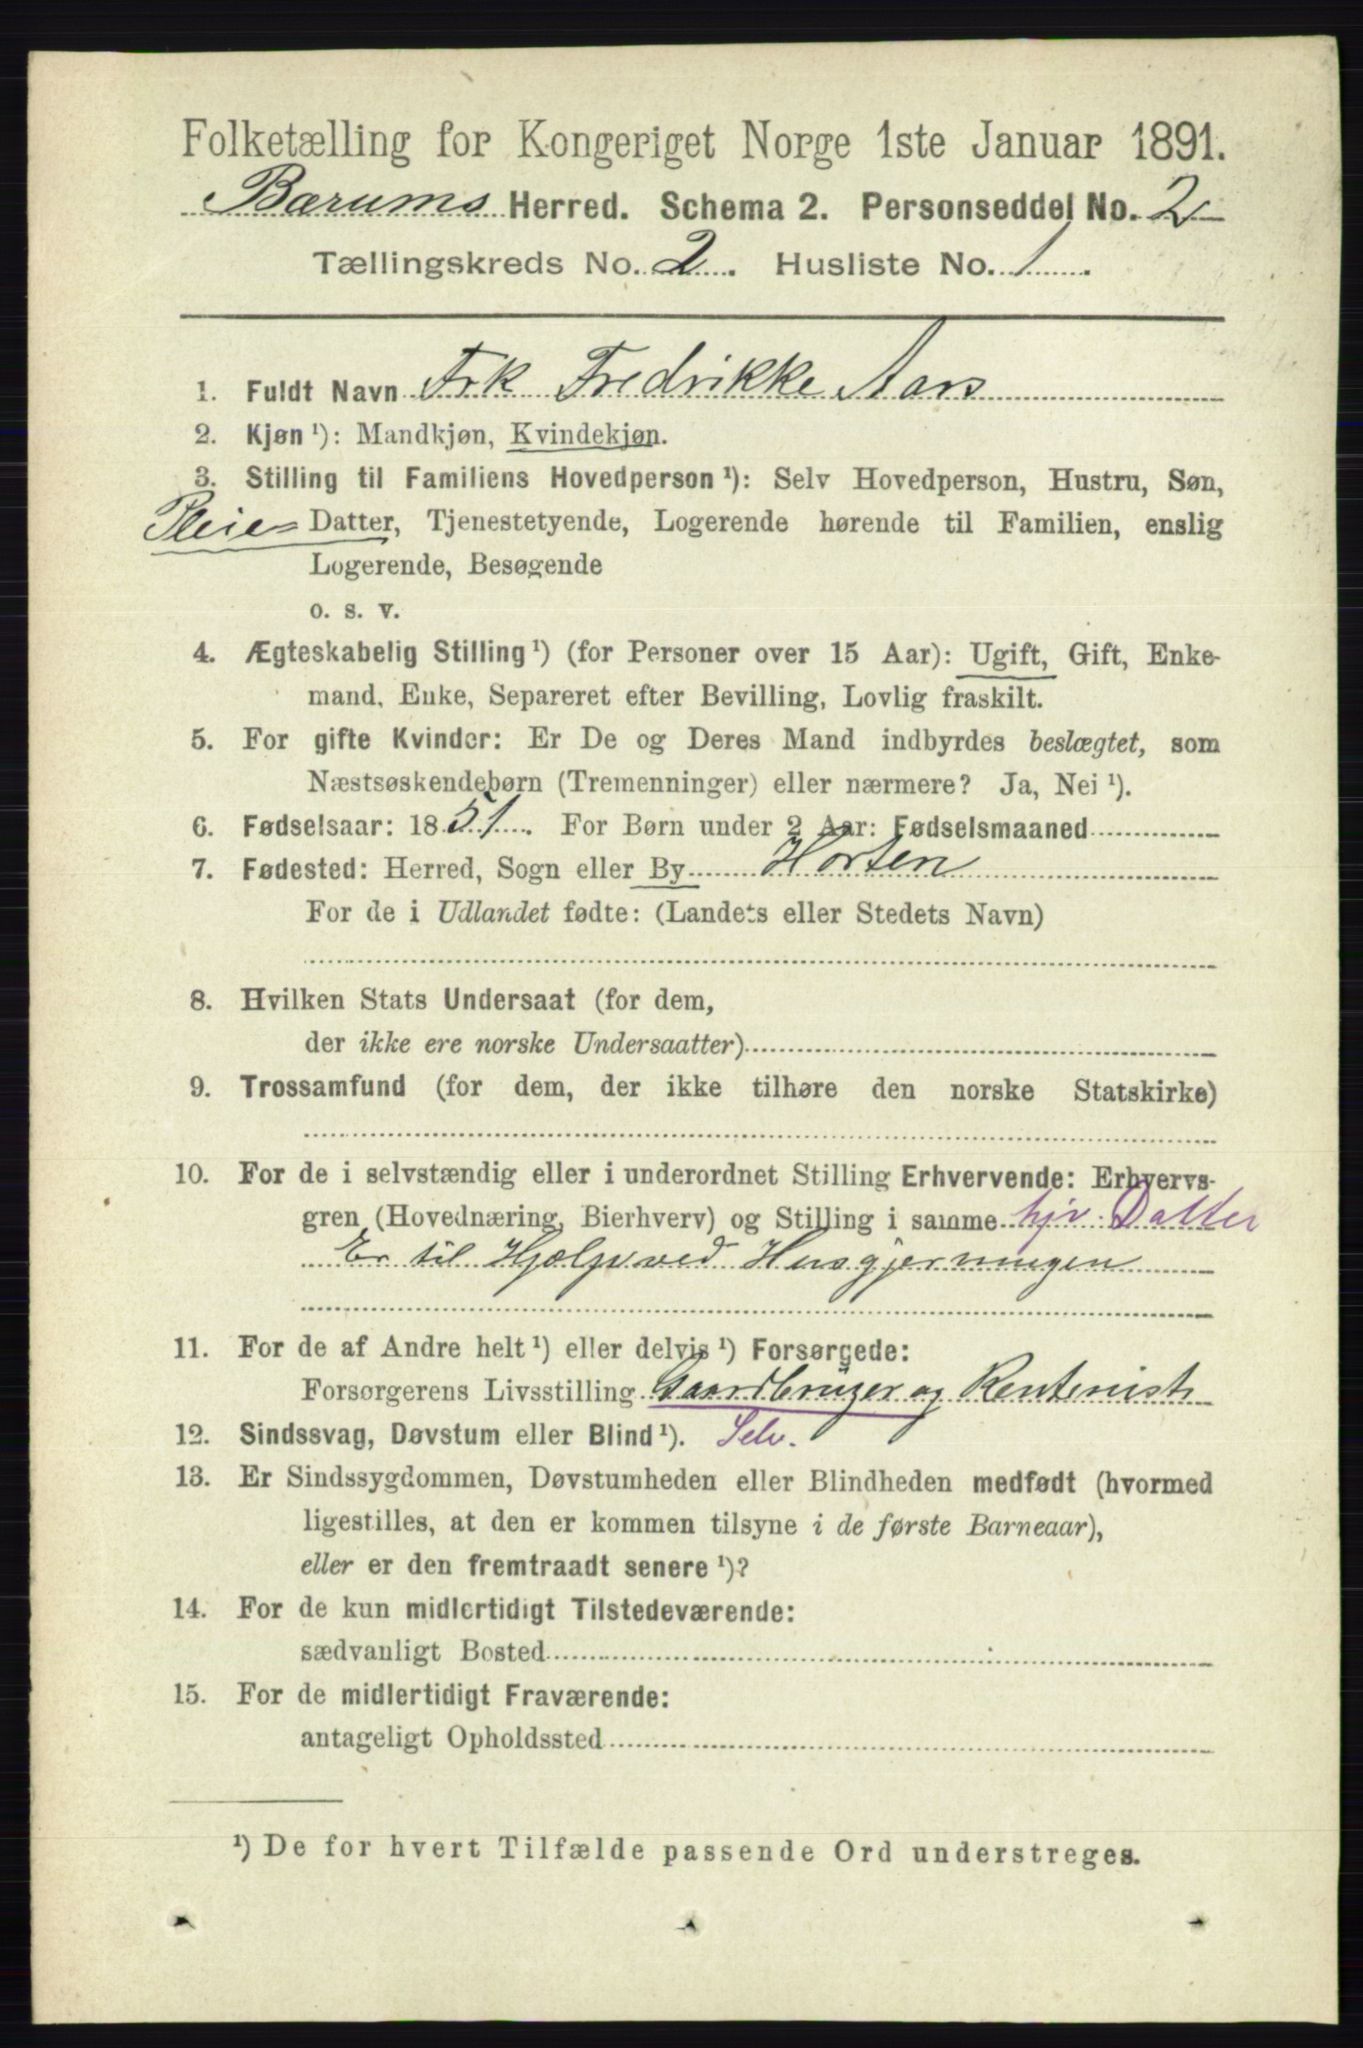 Folketælling for Kongeriget Norge 1ste Januar 1891.
Bærums Herred. Schema 2. Personseddel No. 2
Tællingskreds No. 2. Husliste No. 1.
1. Fuldt Navn Frk Fredrikke Aars
2. Kjøn ¹): Mandkjøn, Kvindekjøn.
3. Stilling til Familiens Hovedperson ¹): Selv Hovedperson, Hustru, Søn,
Pleie- Datter, Tjenestetyende, Logerende hørende til Familien, enslig
Logerende, Besøgende
o. s. v.
4. Ægteskabelig Stilling ¹) (for Personer over 15 Aar): Ugift, Gift, Enke-
mand, Enke, Separeret efter Bevilling, Lovlig fraskilt.
5. For gifte Kvinder: Er De og Deres Mand indbyrdes beslægtet, som
Næstsøskendebørn (Tremenninger) eller nærmere? Ja, Nei ¹).
6. Fødselsaar: 1851. For Børn under 2 Aar: Fødselsmaaned
7. Fødested: Herred, Sogn eller By Horten
For de i Udlandet fødte: (Landets eller Stedets Navn)
8. Hvilken Stats Undersaat (for dem,
der ikke ere norske Undersaatter)
9. Trossamfund (for dem, der ikke tilhøre den norske Statskirke)
10. For de i selvstændig eller i underordnet Stilling Erhvervende: Erhvervs-
gren (Hovednæring, Bierhverv) og Stilling i samme hjv. Datter
Er til Hjælp ved Husgjerningen
11. For de af Andre helt ¹) eller delvis ¹) Forsørgede:
Forsørgerens Livsstilling Gaardbruger og Rentenist
12. Sindssvag, Døvstum eller Blind ¹). Selv.
13. Er Sindssygdommen, Døvstumheden eller Blindheden medfødt (hvormed
ligestilles, at den er kommen tilsyne i de første Barneaar),
eller er den fremtraadt senere ¹)?
14. For de kun midlertidigt Tilstedeværende:
sædvanligt Bosted
15. For de midlertidigt Fraværende:
antageligt Opholdssted
¹) De for hvert Tilfælde passende Ord understreges.